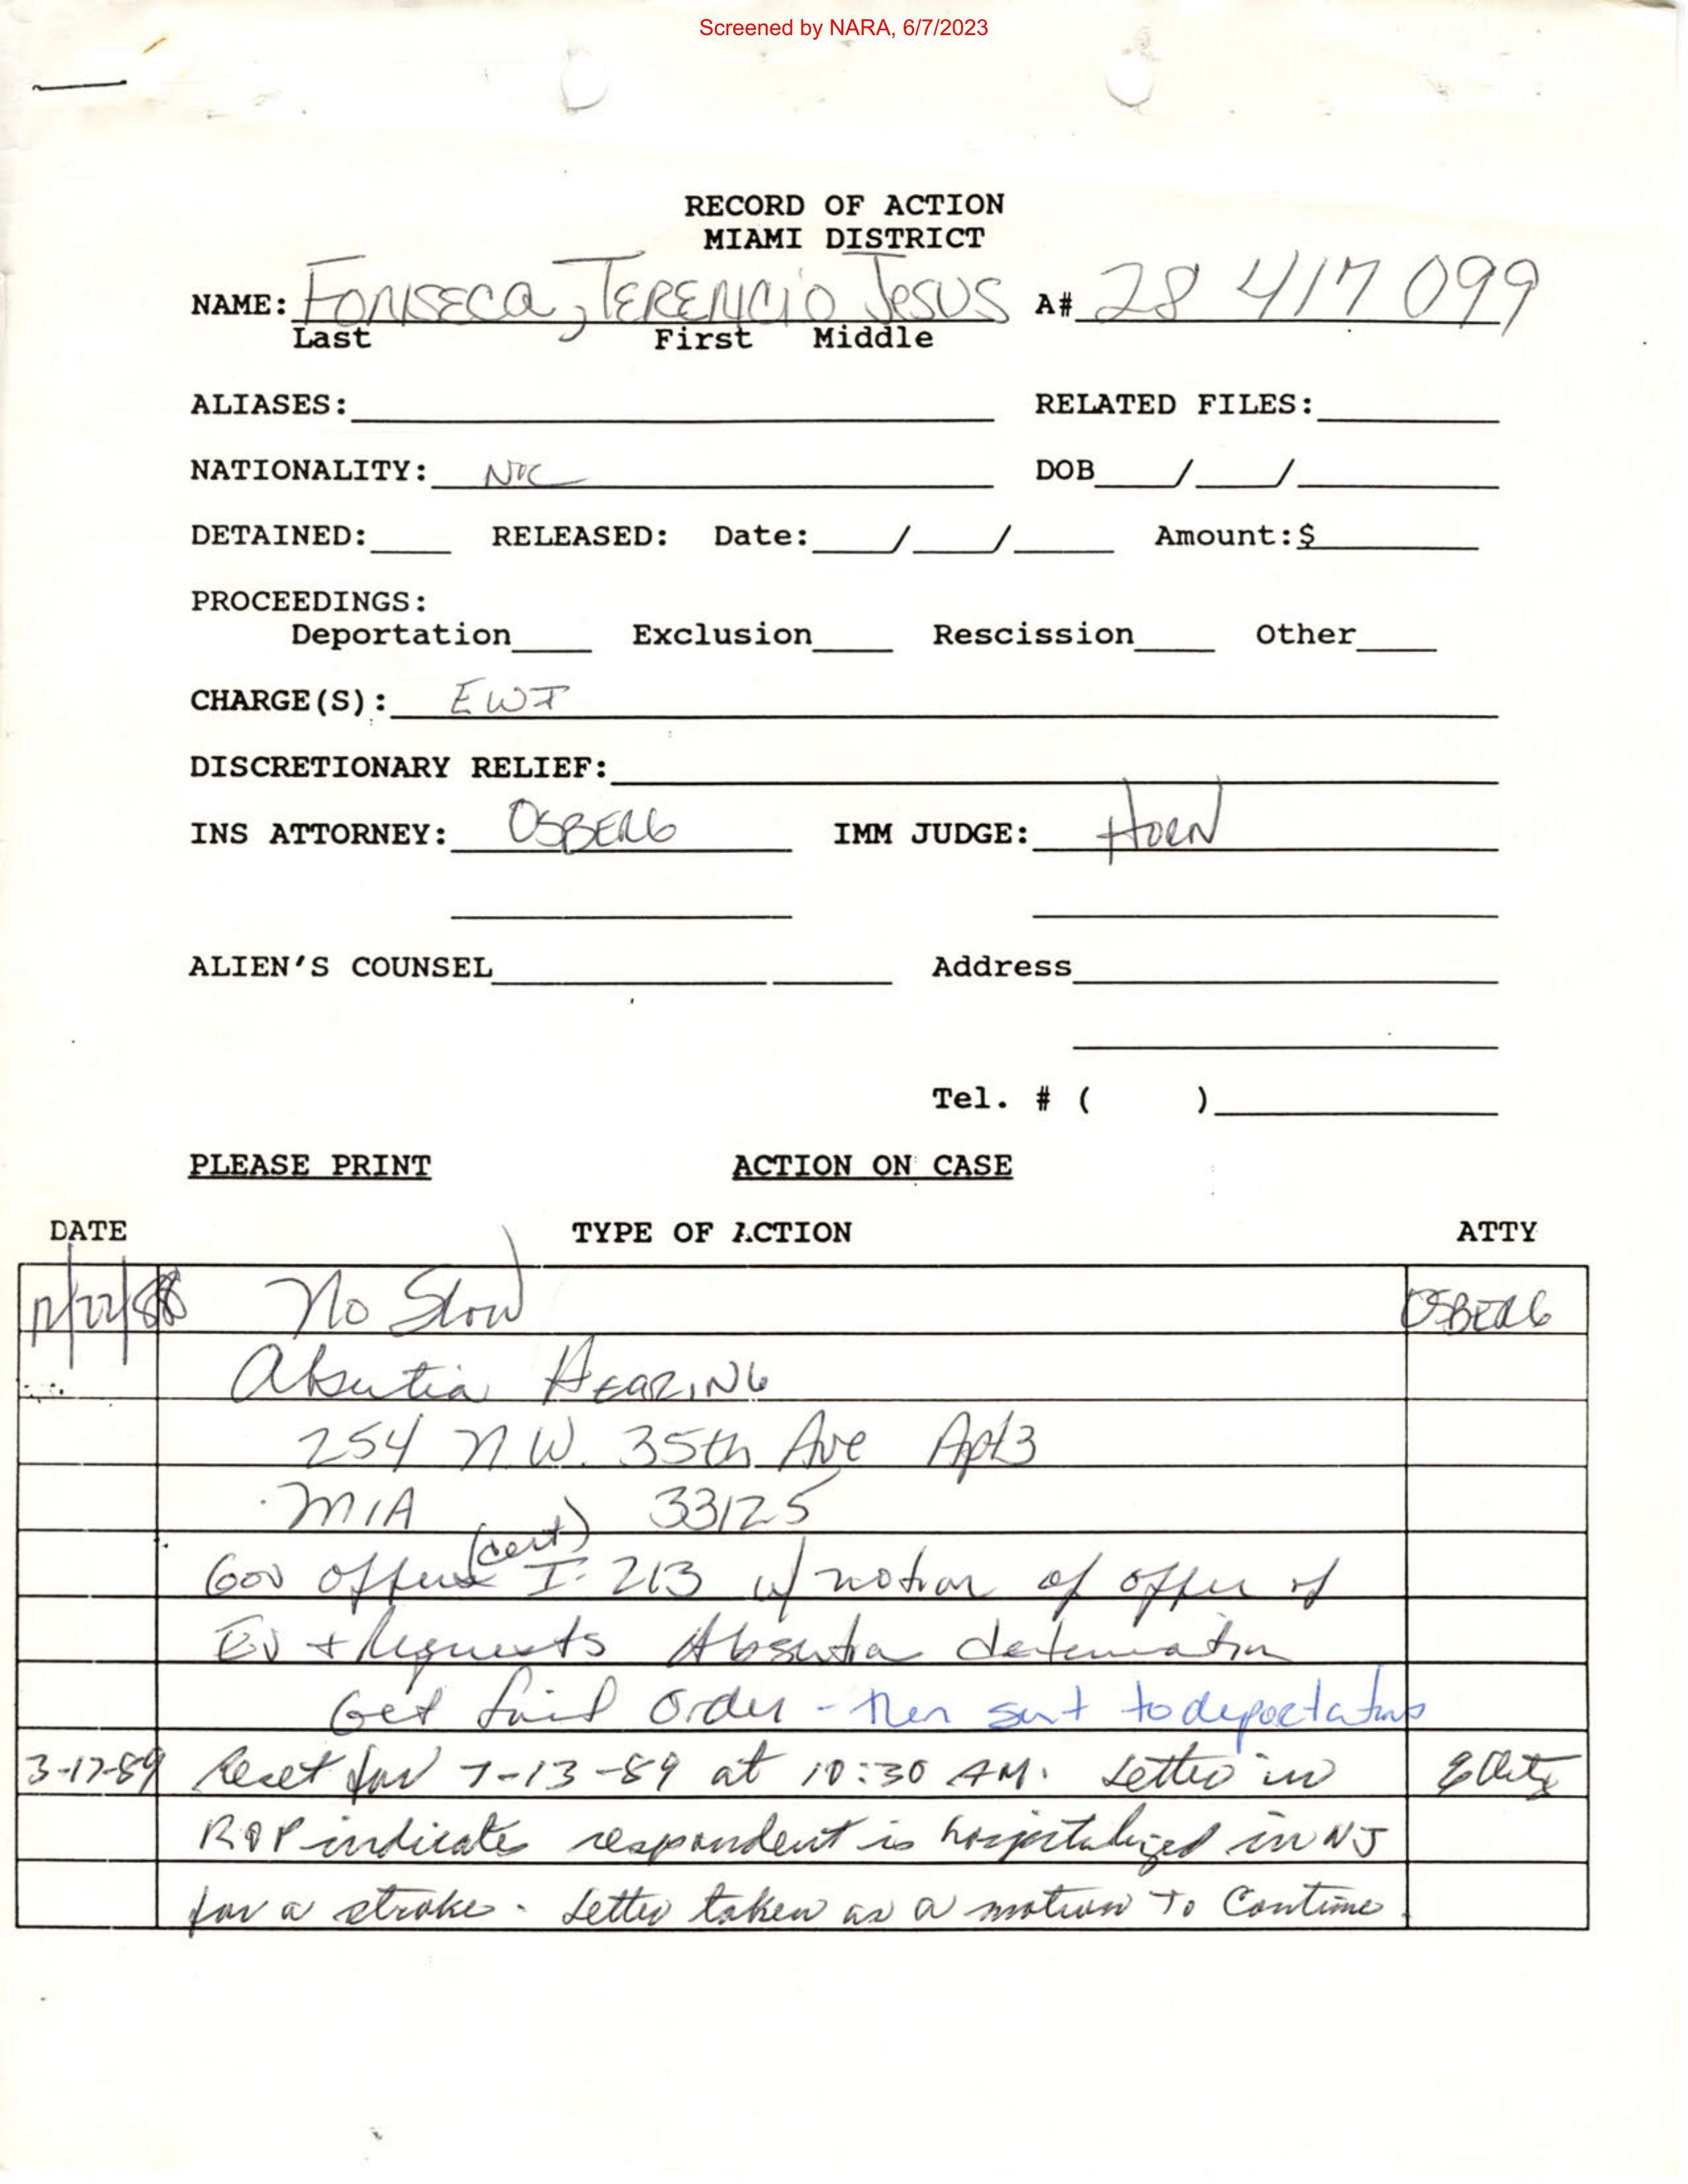 Screened by NARA, 6/7/2023
RECORD OF ACTION
MIAMI DISTRICT
NAME: FONSECA, TERENCIO JESUS A# 28 417 099
Last First Middle
ALIASES: RELATED FILES:
NATIONALITY: NIC DOB / /
DETAINED: RELEASED: Date: / / Amount:$
PROCEEDINGS:
Deportation Exclusion Rescission Other
CHARGE(S): EWI
DISCRETIONARY RELIEF:
INS ATTORNEY: OSBERG IMM JUDGE: HORN
ALIEN'S COUNSEL Address
Tel. # ( )
PLEASE PRINT ACTION ON CASE
DATE TYPE OF ACTION ATTY
12/22/88 No Show OSBERG
Absentia HEARING
254 N.W. 35th Ave Apt 3
MIA 33125
(cert)
Gov offers I-213 w/ notion of offer of
Ev + Requests Absentia determination
Get final order - then sent to deportations
3-17-89 Reset for 7-13-89 at 10:30 AM. Letter in
ROP indicates respondent is hospitalized in NJ
for a stroke. Letter taken as a motion to Continue.